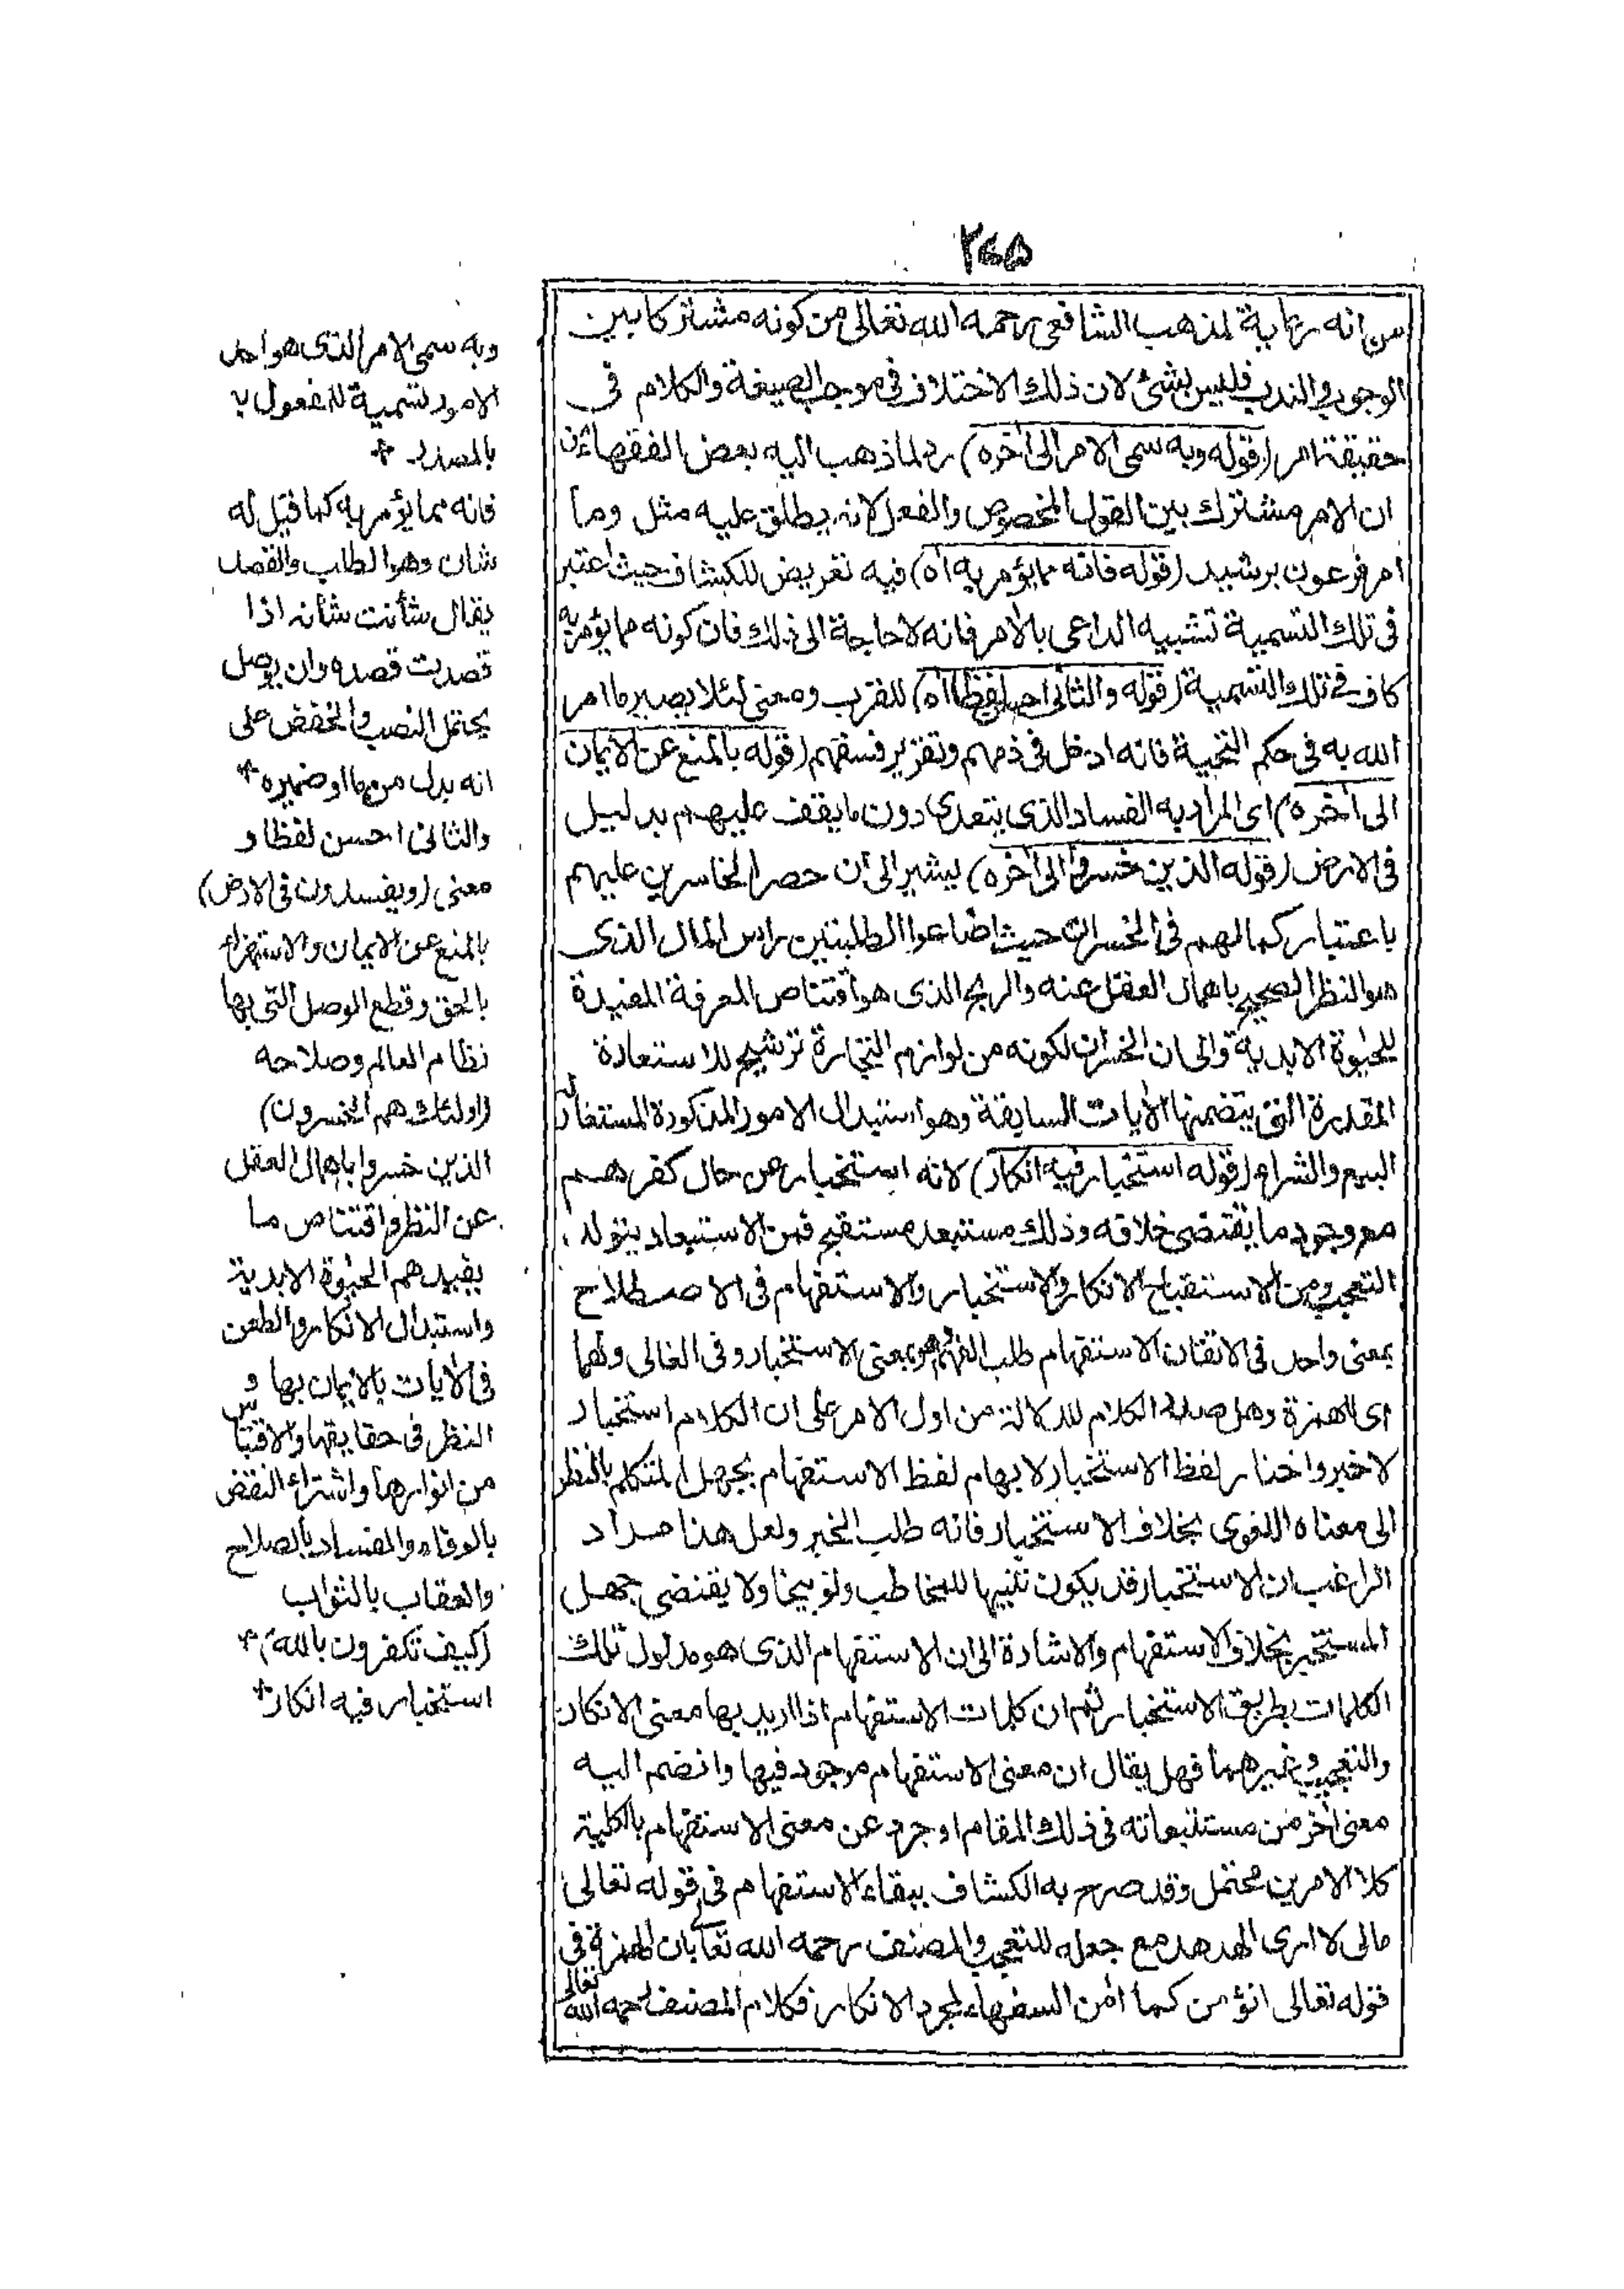 ٢٦٥
من انه رعاية لمذهب الشافعى رحمه الله تعالى من كونه مشتركا بين
الوجوب والندب فليس بشئ لان ذلك الاختلاف فى موجب الصيغة والكلام فى
حقيقة امر (قوله وبه سمى الامر الى اخره) رد لما ذهب اليه بعض الفقهاء من
ان الامر مشترك بين القول المخصوص والفعل لانه يطلق عليه مثل وما
امر فرعون برشيد (قوله فانه مما يؤمر به اه) فيه تعريض للكشاف حيث اعتبر
فى تلك التسمية تشبيه الداعى بالأمر فانه لا حاجة الى ذلك فان كونه مما يؤمر به
كاف فى تلك التسمية (قوله والثانى احسن لفظا اه) للقرب ومعنى لئلا يصير ما امر
الله به فى حكم التخية فانه ادخل فى ذمهم وتقرير فسقهم (قوله بالمنع عن الايمان
الى اخره) اى المراد به الفساد الذى يتعدى دون ما يقف عليهم بدليل
فى الارض (قوله الذين خسروا الى اخره) يشير الى ان حصر الخاسرين عليهم
باعتبار كمالهم فى الخسران حيث اضاعوا الطلبتين راس المال الذى
هو النظر الصحيح باهمال العقل عنه والربح الذى هو اقتناص المعرفة المفيدة
للحيوة الابدية والى ان الخسران لكونه من لوازم التجارة ترشيح للاستعارة
المقدرة التى يتضمنها الأيات السابقة وهو استبدال الامور المذكورة المستعار له
البيع والشراء (قوله استخبار فيه انكار) لانه استخبار عن حال كفرهم
مع وجود ما يقتضى خلافه وذلك مستبعد مستقبح فمن الاستبعاد يتولد
التعجب ومن الاستقباح الانكار والاستخبار والاستفهام فى الاصطلاح
بمعنى واحد فى الاتقان الاستفهام طلب الفهم وهو بمعنى الاستخبار وفى الغالى ولهما
اى للهمزة وهل صدر الكلام للدلالة من اول الامر على ان الكلام استخبار
لا خبر واختار لفظ الاستخبار لايهام لفظ الاستفهام بجهل المتكلم بالنظر
الى معناه اللغوى بخلاف الاستخبار فانه طلب الخبر ولعل هذا مراد
الراغب ان الاستخبار قد يكون تنبيها للمخاطب وتوبيخا ولا يقتضى جهل
المستخبر بخلاف الاستفهام والاشارة الى ان الاستفهام الذى هو مدلول تلك
الكلمات بطريق الاستخبار ثم ان كلمات الاستفهام اذا اريد بها معنى الانكار
والتعجب وغيرهما فهل يقال ان معنى الاستفهام موجود فيها وانضم اليه
معنى أخر من مستتبعاته فى ذلك المقام او جرد عن معنى الاستفهام بالكلية
كلا الامرين محتمل وقد صرح به الكشاف ببقاء الاستفهام فى قوله تعالى
مالى لا ارى الهدهد مع جعله للتعجب والمصنف رحمه الله تعالى بان الهمزة فى
قوله تعالى انؤمن كما أمن السفهاء لمجرد الانكار فكلام المصنف رحمه الله تعالى
وبه سمى الامر الذى هو احد
الامور تسمية للمفعول به
بالمصدر *
فانه مما يؤمر به كما قيل له
شان وهو الطلب والقصد
يقال شأنت شأنه اذا
قصدت قصده وان يوصل
يحتمل النصب والخفض على
انه بدل من ما او ضميره *
والثانى احسن لفظا و
معنى (ويفسدون فى الارض)
بالمنع عن الايمان والاستهزاء
بالحق وقطع الوصل التى بها
نظام العالم وصلاحه
(اولئك هم الخسرون)
الذين خسروا باهمال العقل
عن النظر واقتناص ما
يفيدهم الحيوة الابدية
واستبدال الانكار والطعن
فى الأيات بالايمان بها و
النظر فى حقايقها والاقتباس
من انوارها واشتراء النقض
بالوفاء والفساد بالصلاح
والعقاب بالثواب
(كيف تكفرون بالله) *
استخبار فيه انكار *